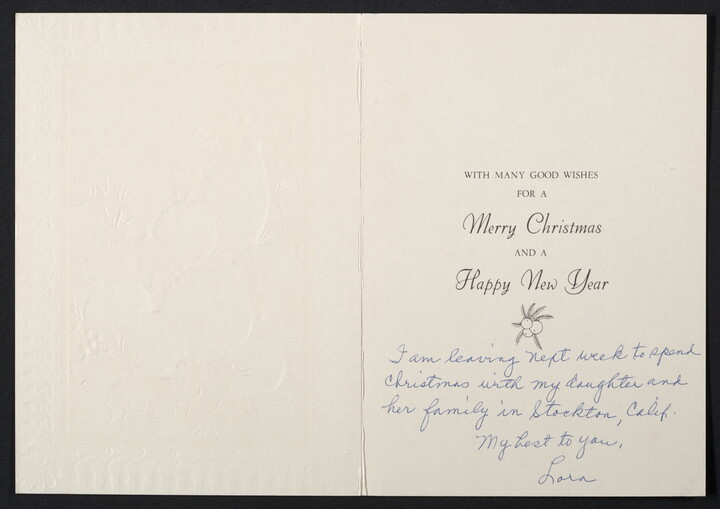 WITH MANY GOOD WISHES
FOR A
Merry Christmas
AND A
Happy New Year
I am leaving next week to spend
Christmas with my daughter and
her family in Stockton, Calif.
My best to you,
Lora